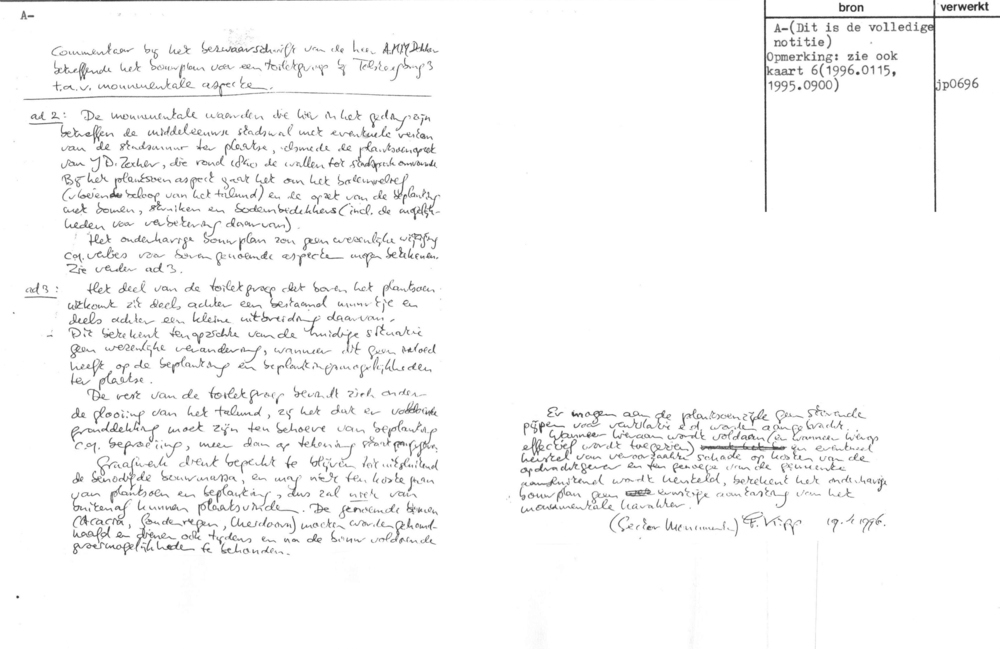 A-
bron verwerkt
A-(Dit is de volledige
notitie)
Opmerking: zie ook
kaart 6(1996.0115,
1995.0900) jp0696
Commentaar bij het bezwaarschrift van de heer A.M.M.
betreffende het bouwplan voor een toiletgroep bij
t.a.v. monumentale aspecten.
ad 2: De monumentale waarden die hier in het geding zijn
betreffen de middeleeuwse stadswal met eventuele resten
van de stadsmuur ter plaatse, alsmede de plantsoenopzet
van J.D. Zocher, die rond de wallen tot stadspark
Bij het plantsoenaspect gaat het om het bodemreliëf
(vloeiende beloop van het talud) en de opzet van de beplanting
met bomen, struiken en bodembedekkers (incl. de mogelijk-
heden voor verbetering daarvan).
Het onderhavige bouwplan zou geen wezenlijke wijziging
c.q. verlies voor bovengenoemde aspecten mogen betekenen.
Zie verder ad 3.
ad 3: Het deel van de toiletgroep dat boven het plantsoen
uitkomt zit deels achter een bestaand muurtje en
deels achter een kleine uitbreiding daarvan.
Dit betekent ten opzichte van de huidige situatie
geen wezenlijke verandering, wanneer dit geen invloed
heeft op de beplanting en beplantingsmogelijkheden
ter plaatse.
De rest van de toiletgroep bevindt zich onder
de glooiing van het talud, zij het dat er voldoende
gronddekking moet zijn ten behoeve van beplanting
c.q. begroeiing, meer dan op tekening staat aangegeven.
Graafwerk dient beperkt te blijven tot uitsluitend
de benodigde bouwmassa, en mag niet ten koste gaan
van plantsoen en beplanting, dus zal niet van
buitenaf kunnen plaatsvinden. De genoemde bomen
(Acacia, Goudenregen, Meidoorn) moeten worden gehand-
haafd en dienen ook tijdens en na de bouw voldoende
groeimogelijkheden te behouden.
Er mogen aan de plantsoenzijde geen storende
pijpen voor ventilatie e.d. worden aangebracht.
Wanneer hieraan wordt voldaan (en wanneer hierop
effectief wordt toegezien) en eventueel
herstel van veroorzaakte schade op kosten van de
opdrachtgever en ten genoegen van de gemeente
aansluitend wordt hersteld, betekent het onderhavige
bouwplan geen ernstige aantasting van het
monumentale karakter.
(Sector Monumenten) 1996.